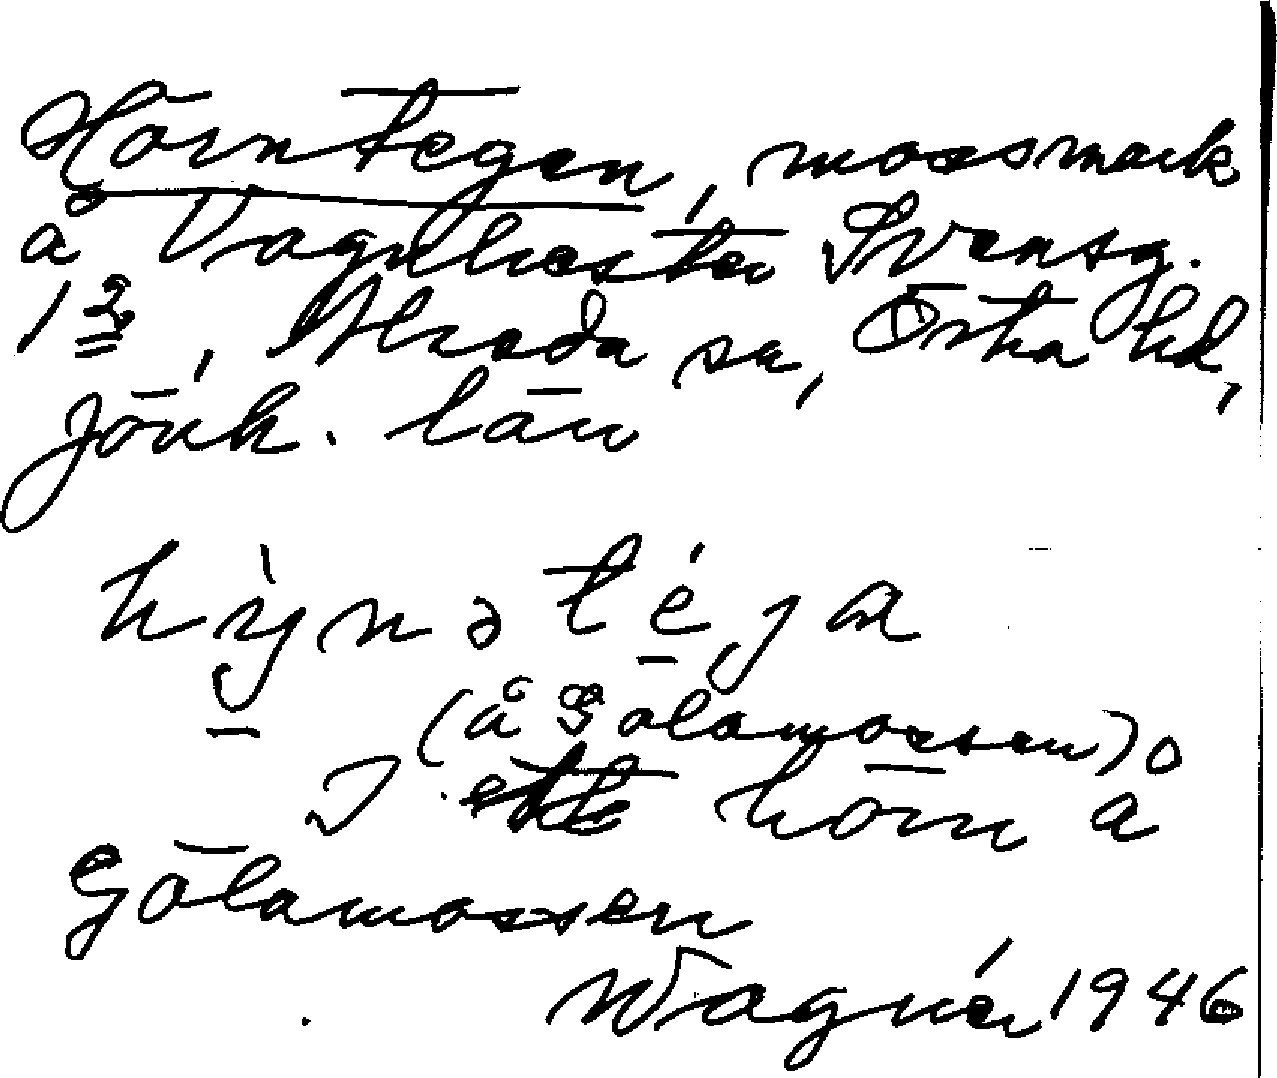 Hörntegen, mossmark
å Vagnhester Svensg.
1², Alseda sn, Östra hd,
Jönk. län
hỳ̱nəté̱ja
(å Gölamossen)
I ett hörn å
Gölamossen
Wagnér 1946